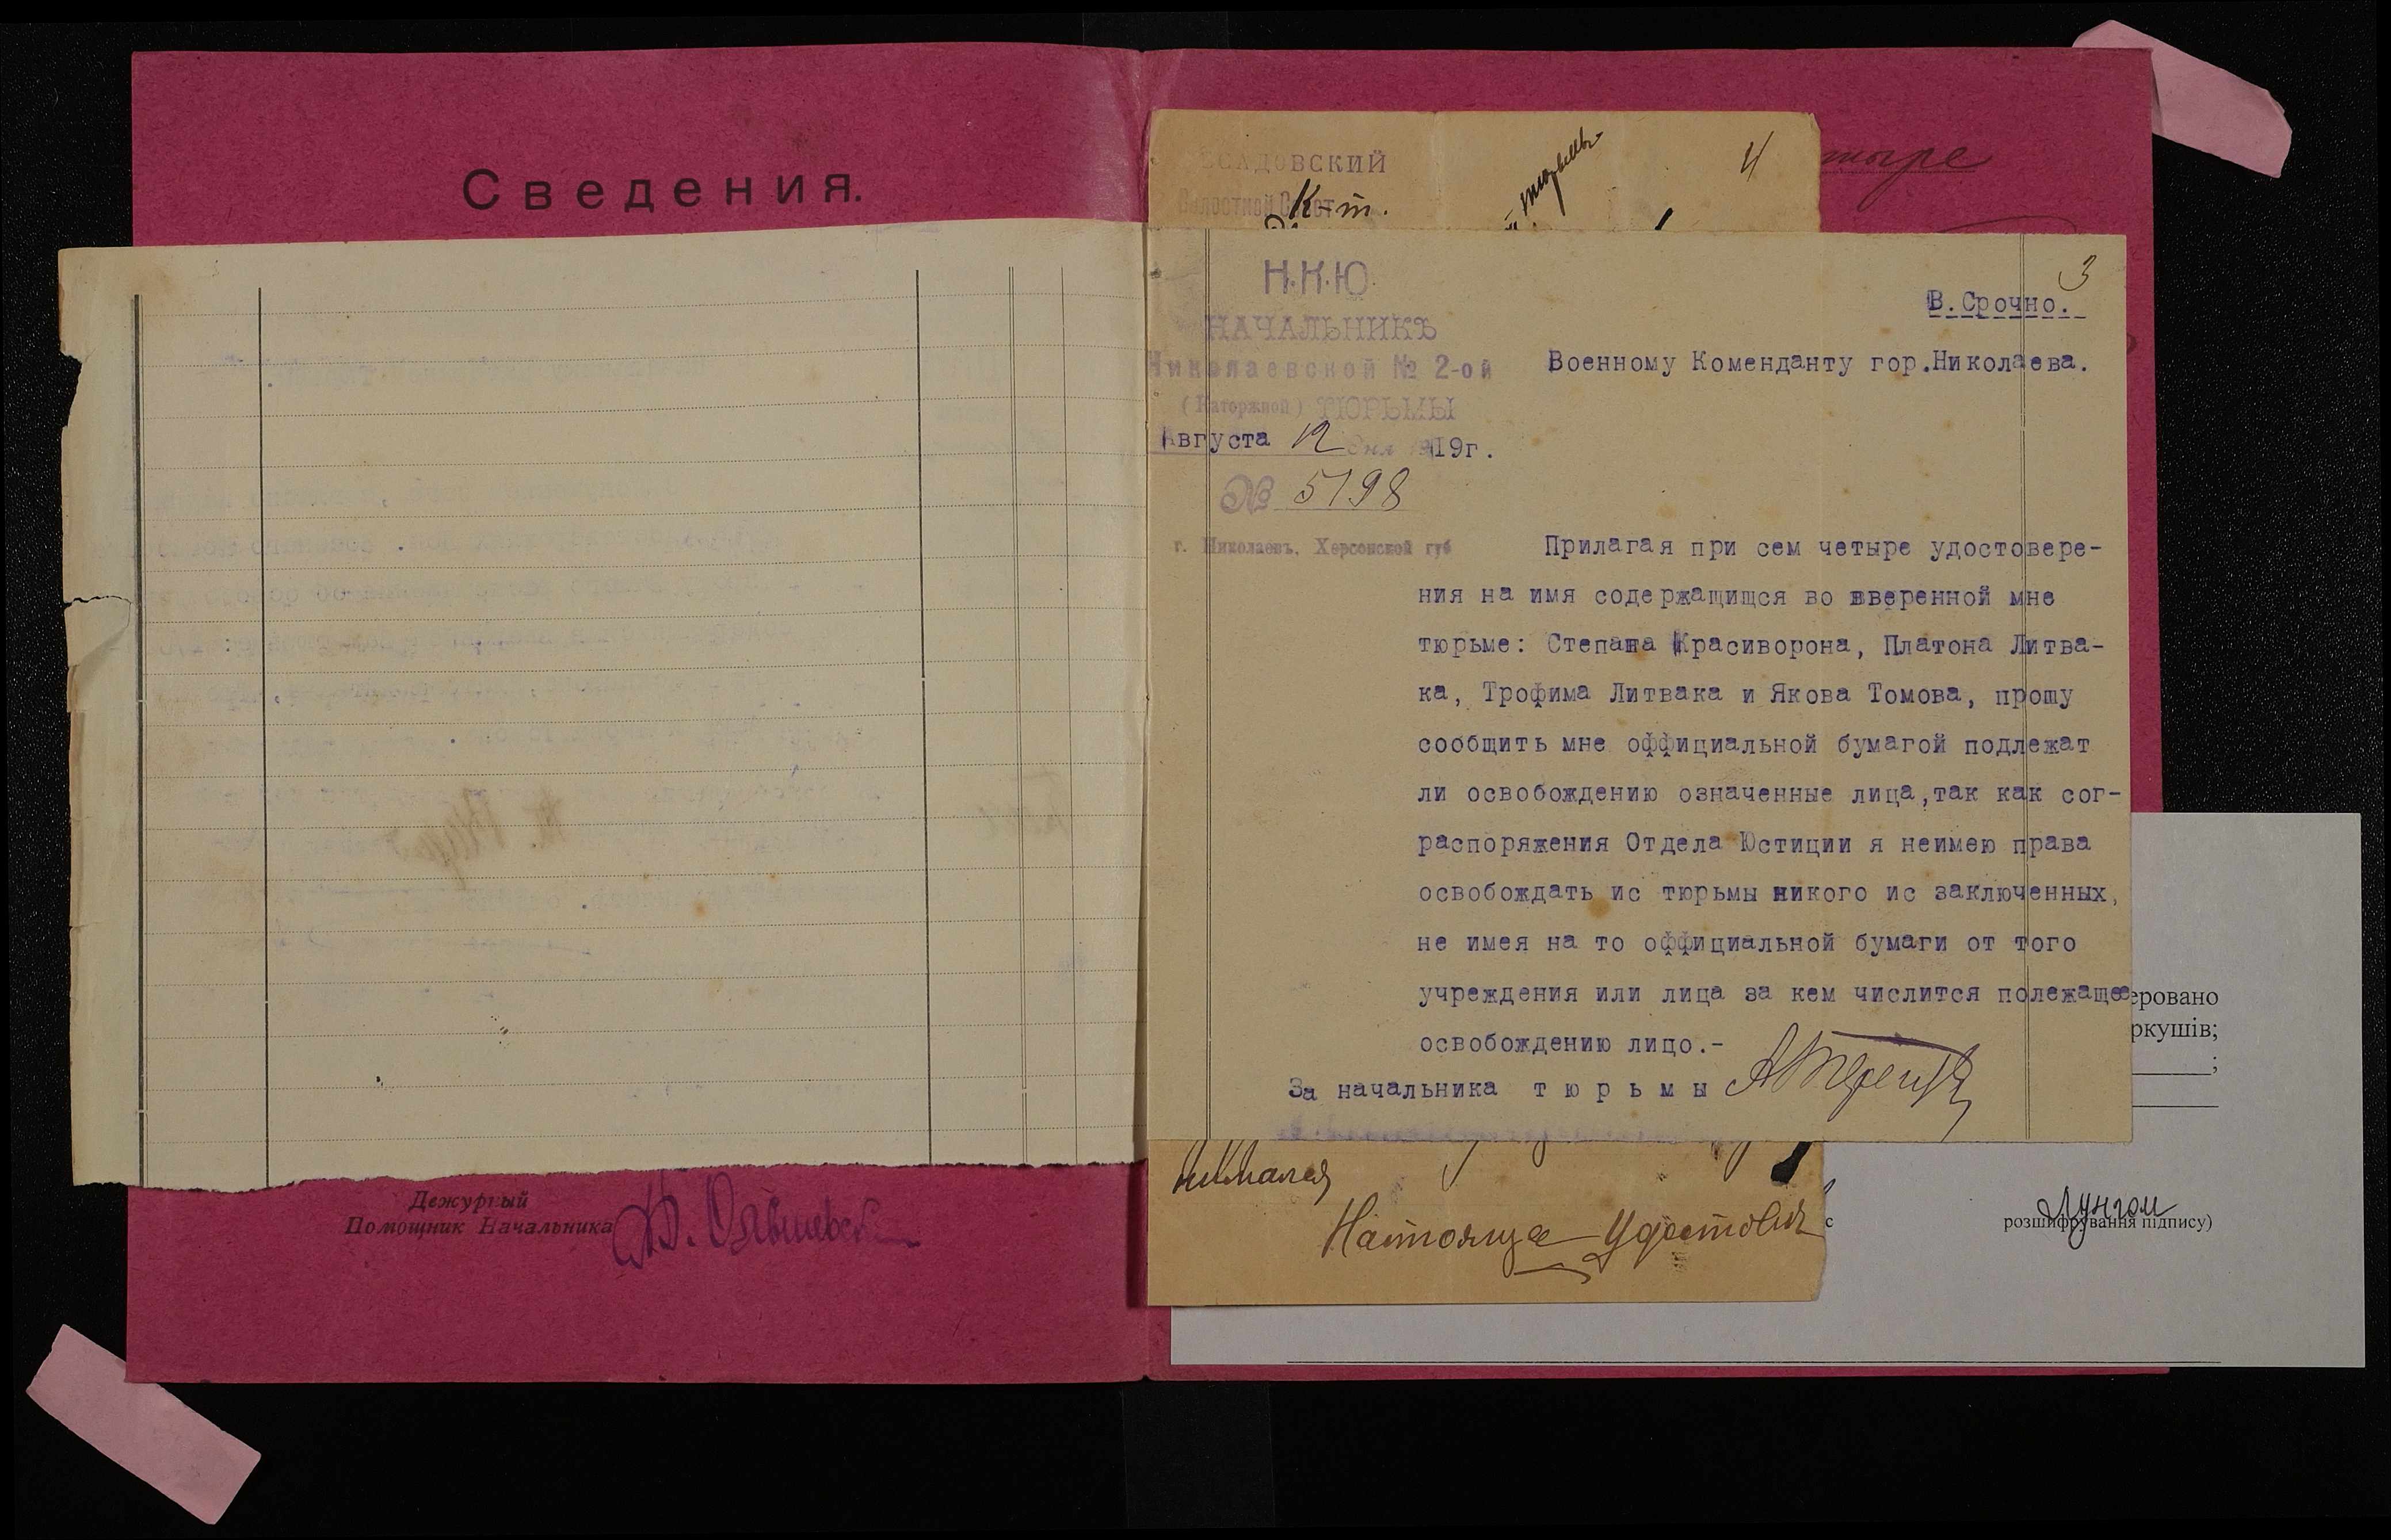 Сведения.
Дежурный
Помощник Начальника
ВСКИЙ
К-т.
4
тыре
3
Н.К.Ю.
НАЧАЛЬНИКЪ
Николаевской № 2-ой
(Каторжной) ТЮРЬМЫ
Августа 12 дня 1919г.
№ 5198
г. Николаевъ, Херсонской губ
В.Срочно.
Военному Коменданту гор.Николаева.
Прилагая при сем четыре удостовере-
ния на имя содержащищся во вверенной мне
тюрьме: Степана Красиворона, Платона Литва-
ка, Трофима Литвака и Якова Томова, прошу
сообщить мне оффициальной бумагой подлежат
ли освобождению означенные лица,так как сог-
распоряжения Отдела Юстиции я неимею права
освобождать ис тюрьмы никого ис заключенных,
не имея на то оффициальной бумаги от того
учреждения или лица за кем числится полежащее
освобождению лицо.-
За начальника тюрьмы
Настояще Удостовия
еровано
ркушів;
;
с
розшифрування підпису)